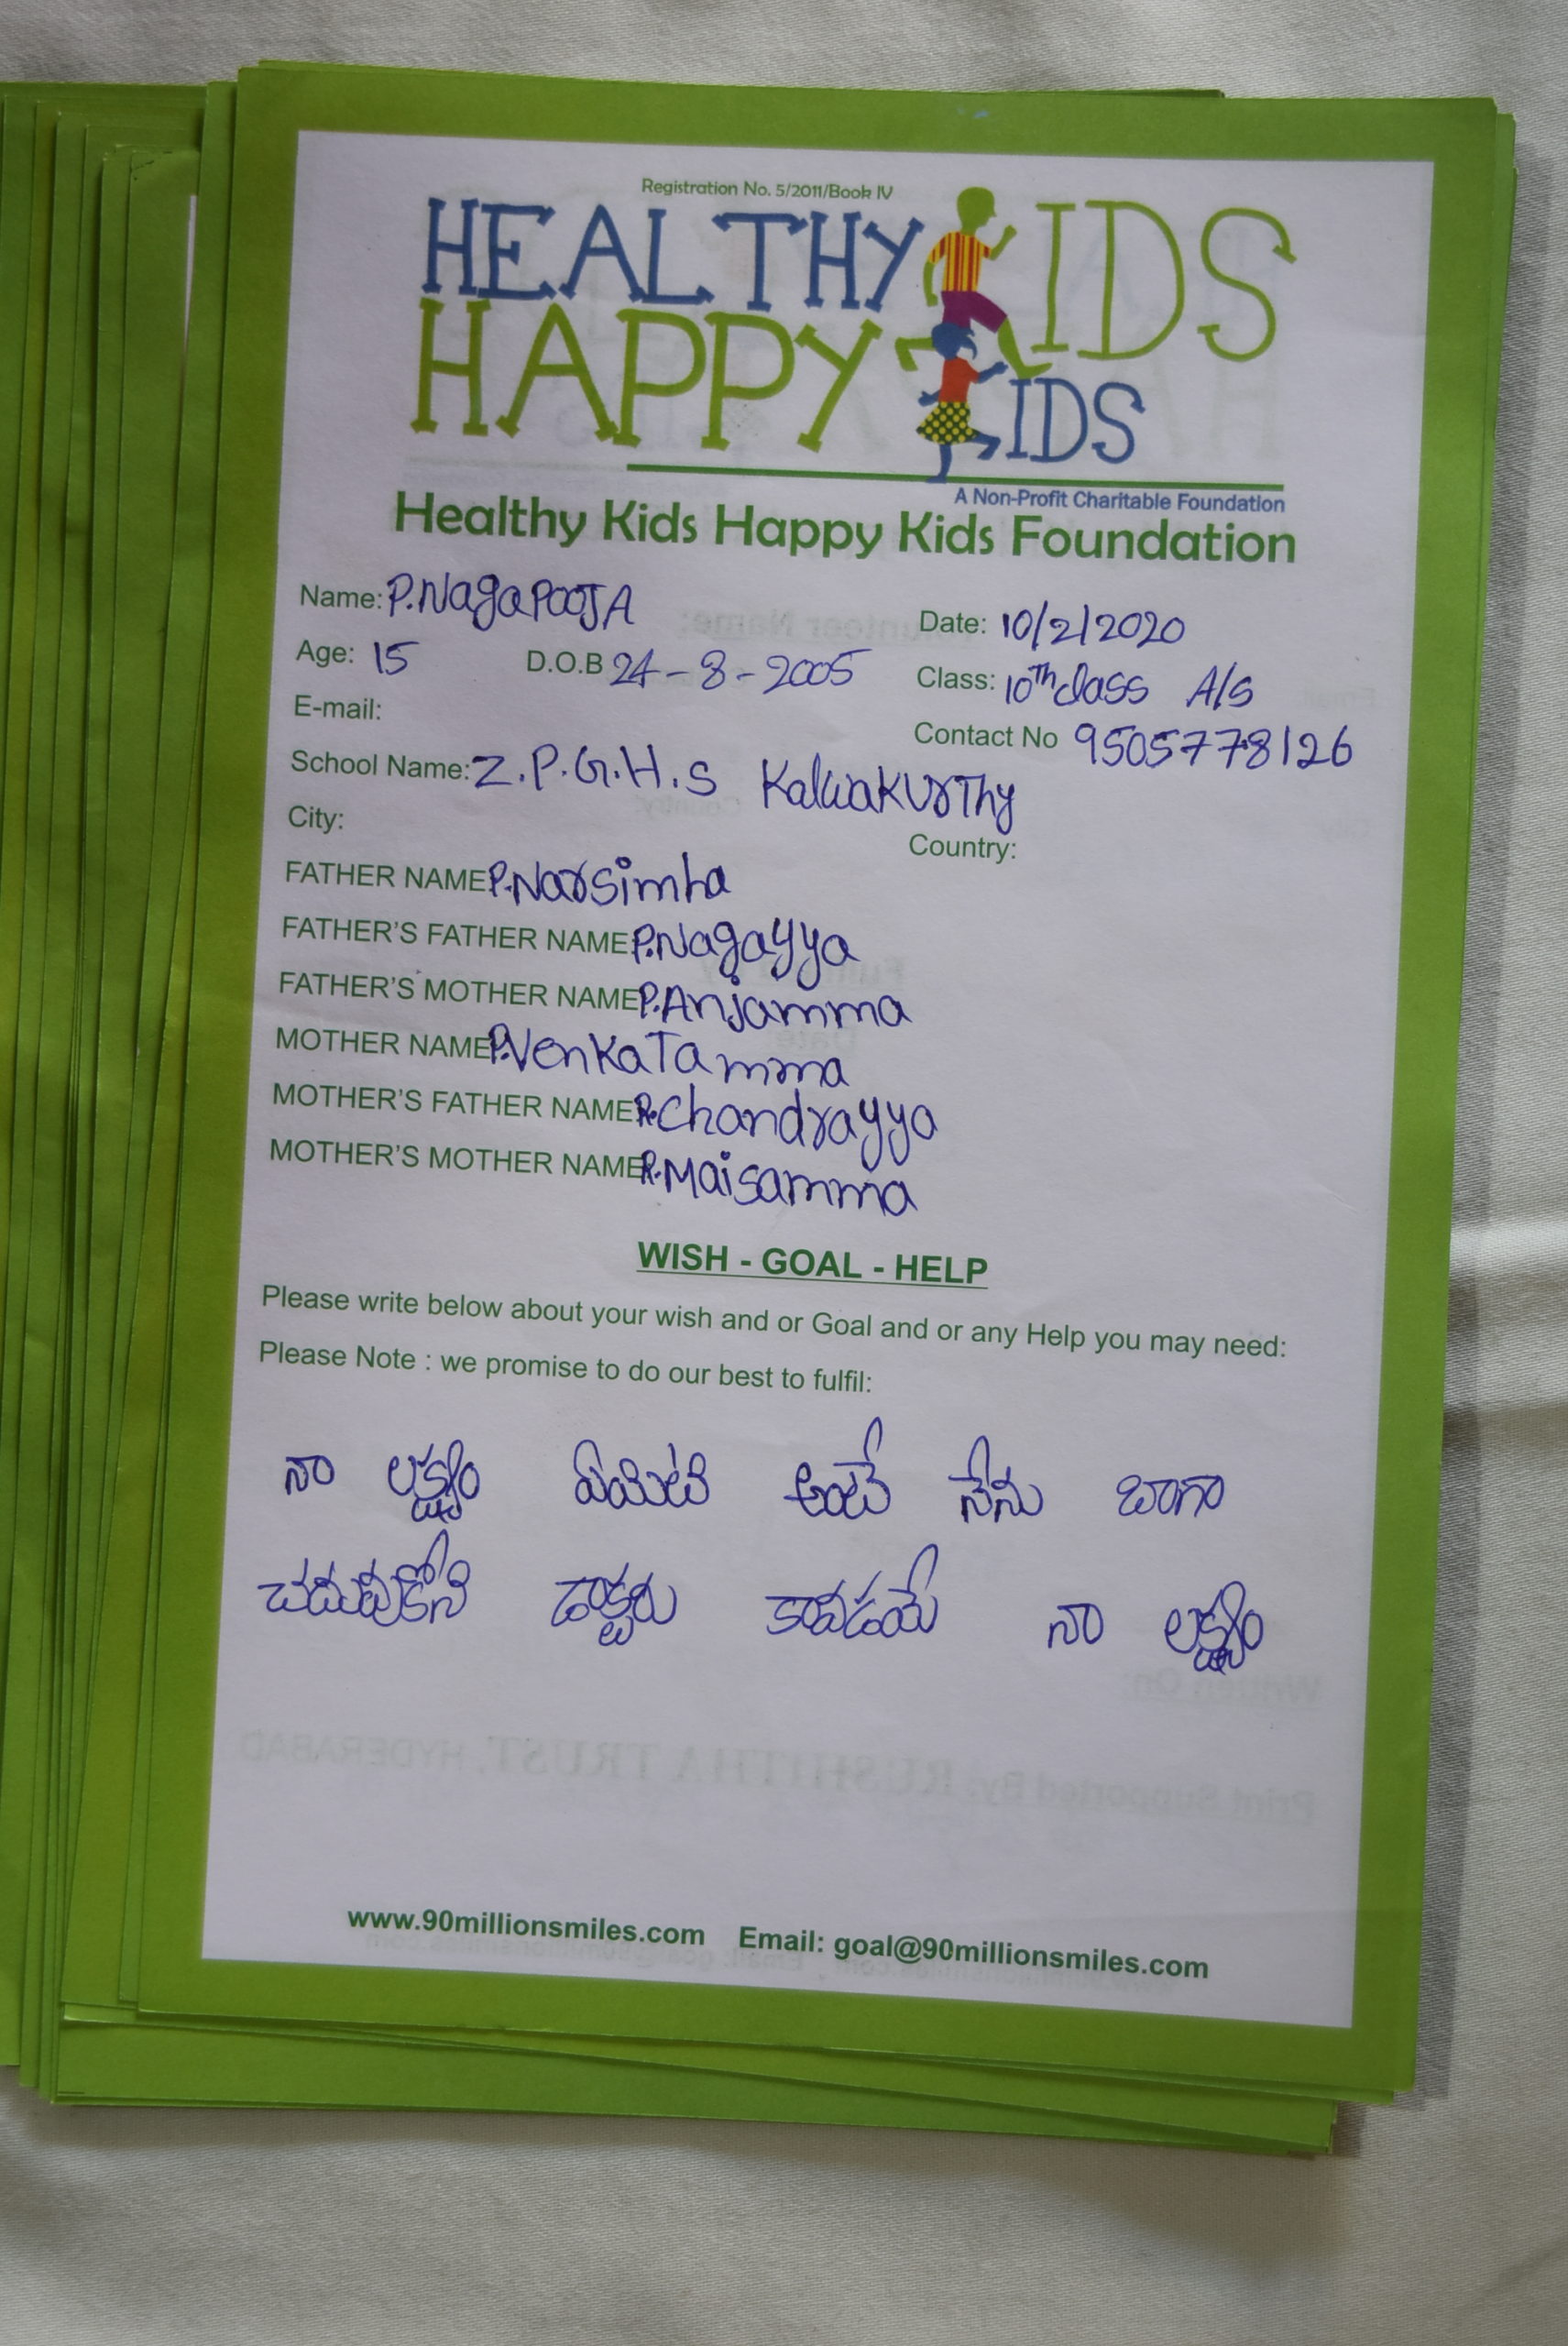 Registration No. 5/2011/Book IV
HEALTHY KIDS
HAPPY KIDS
A Non-Profit Charitable Foundation
Healthy Kids Happy Kids Foundation
Name: P.NagaPOOJA
Date: 10/2/2020
Age: 15 D.O.B 24-8-2005
Class: 10Th class A/S
E-mail:
Contact No 9505778126
School Name: Z.P.G.H.S KalwaKurThy
City:
Country:
FATHER NAME P.Narsimha
FATHER'S FATHER NAME P.Nagayya
FATHER'S MOTHER NAME P.Anjamma
MOTHER NAME P.VenKaTamma
MOTHER'S FATHER NAME R.Chandrayya
MOTHER'S MOTHER NAME R.Maisamma
WISH - GOAL - HELP
Please write below about your wish and or Goal and or any Help you may need:
Please Note : we promise to do our best to fulfil:
నా లక్ష్యం ఏమిటి అంటే నేను బాగా
చదువుకోని డాక్టరు కావడమే నా లక్ష్యం
www.90millionsmiles.com Email: goal@90millionsmiles.com